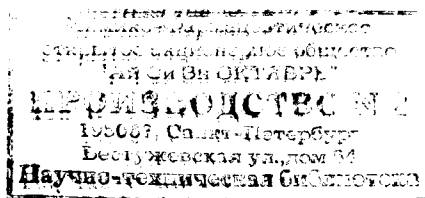 открытое акционерное общество
"Ай Си Эн ОКТЯБРЬ"
ПРОИЗВОДСТВО N 2
Санкт-Петербург
Бестужевская ул., дом
Научно-техническая библиотека